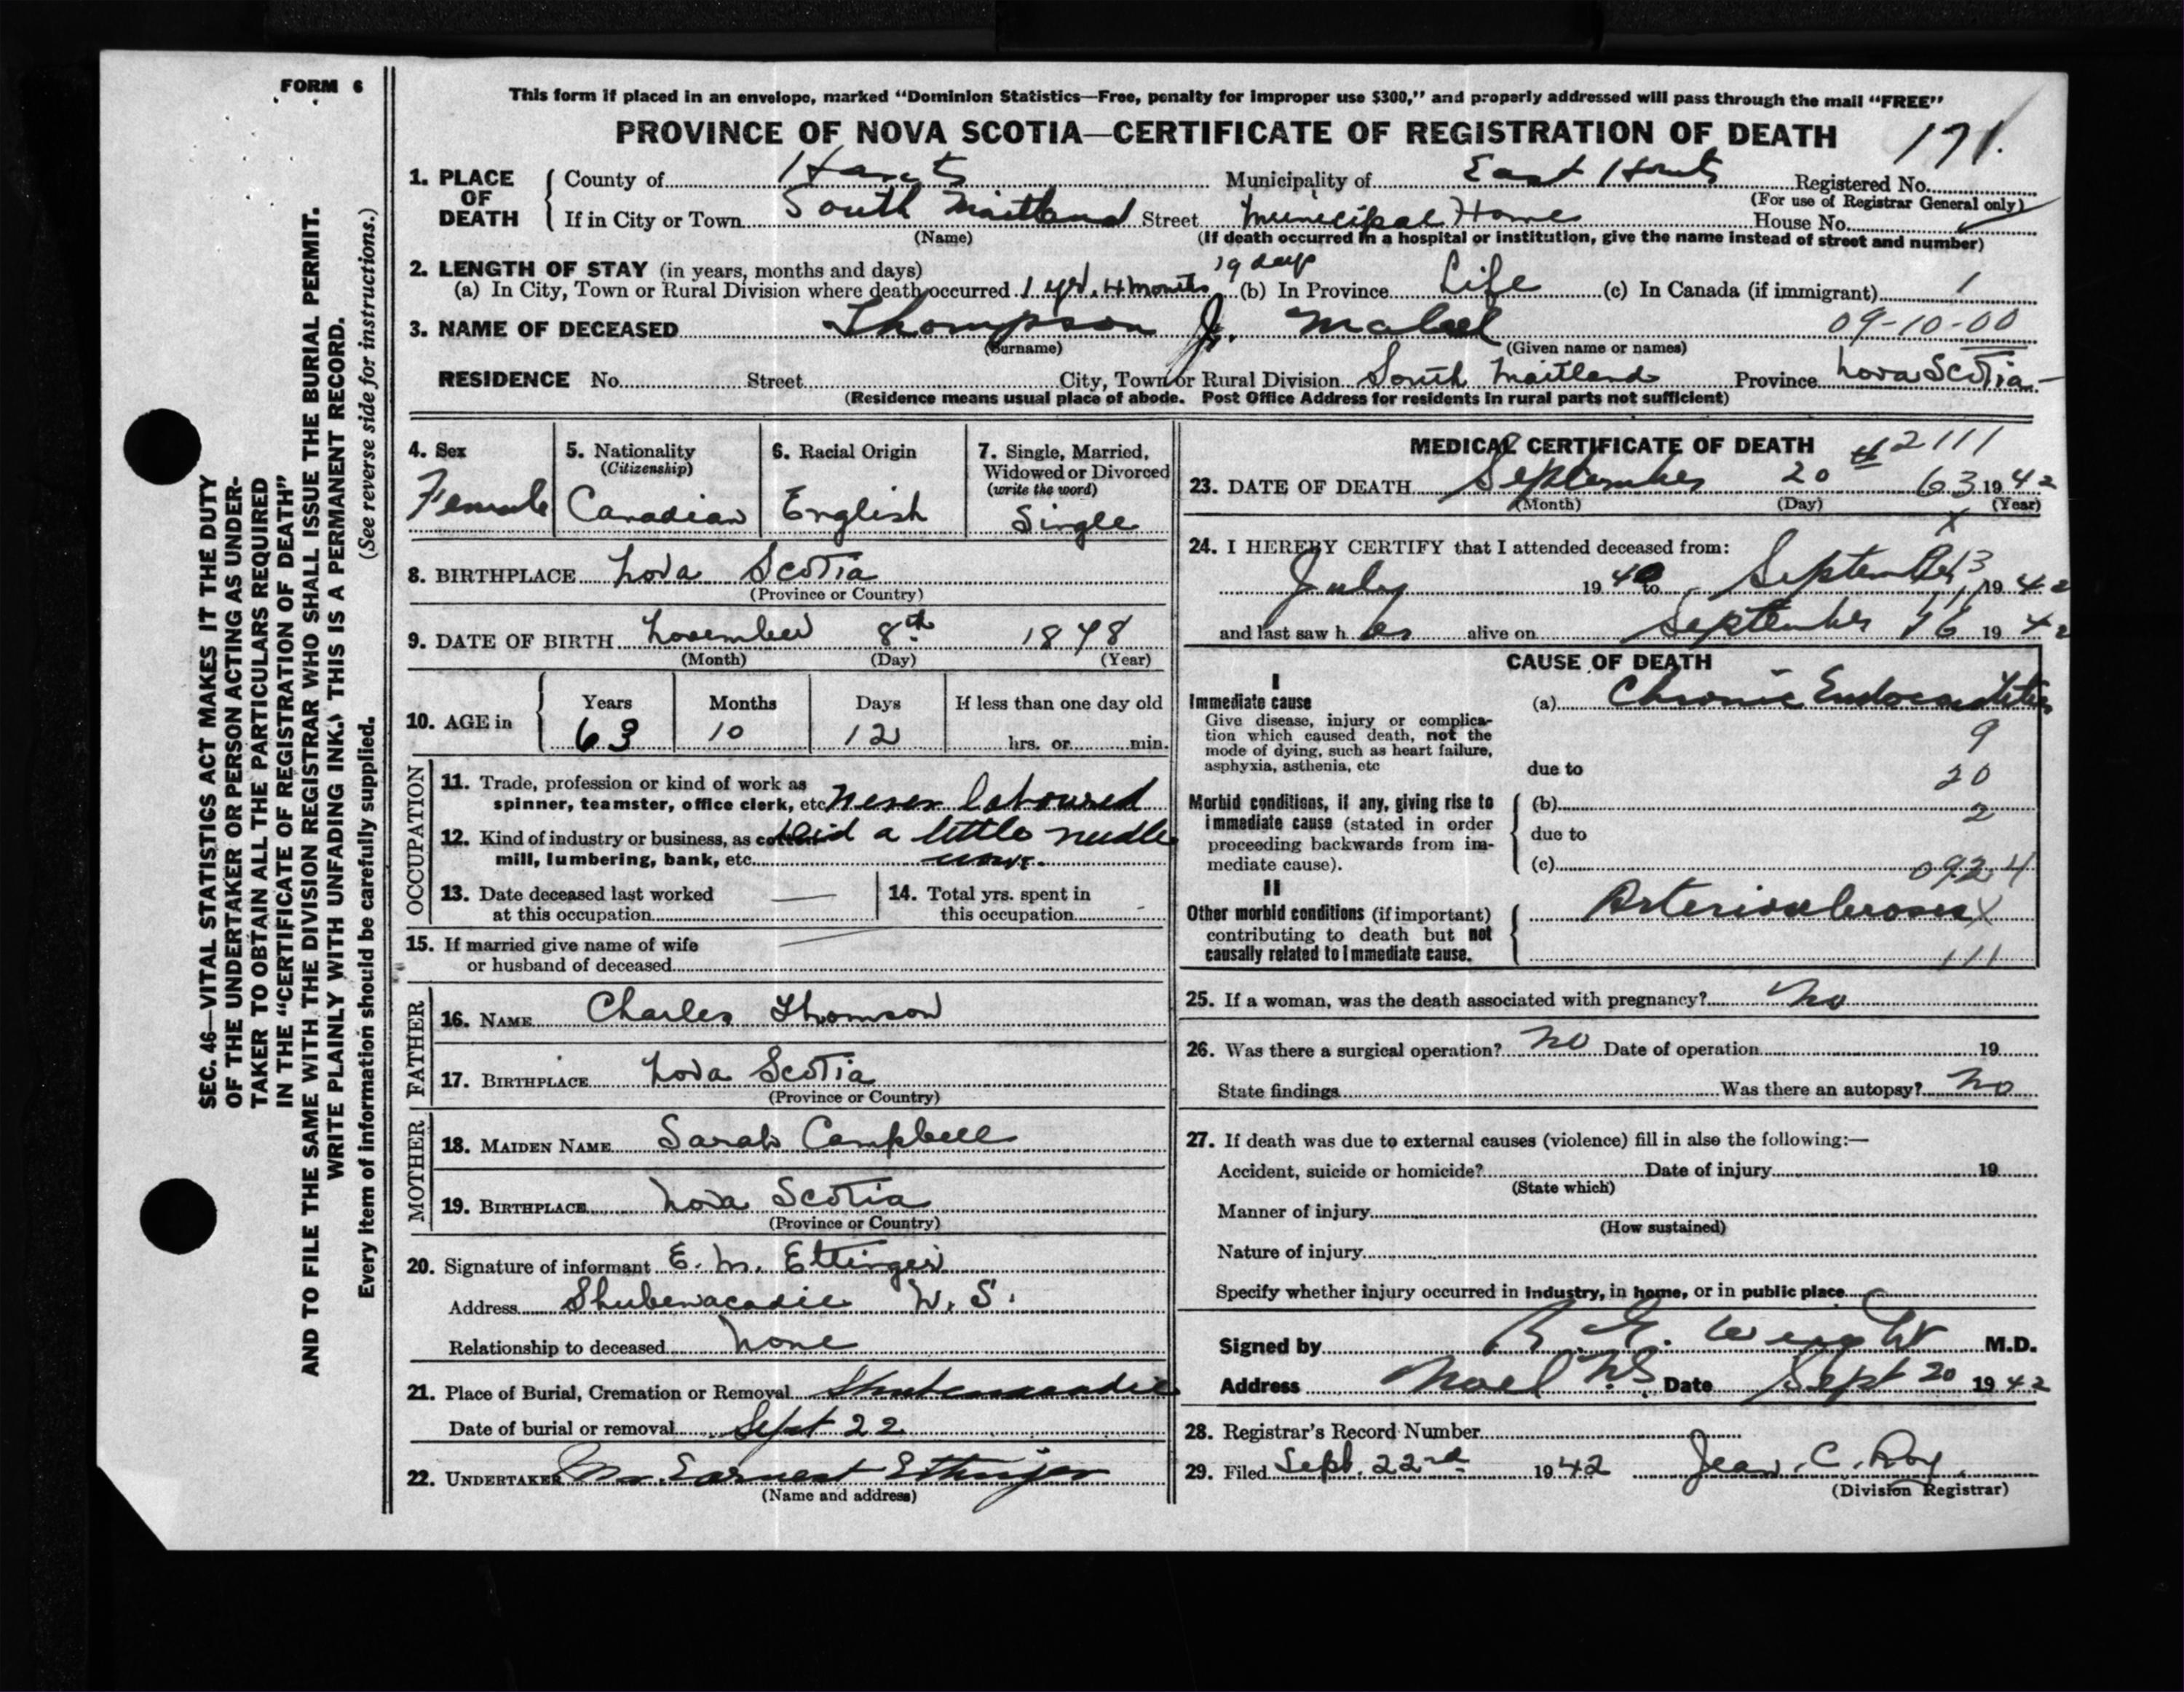 FORM 6
SEC. 46—VITAL STATISTICS ACT MAKES IT THE DUTY
OF THE UNDERTAKER OR PERSON ACTING AS UNDER-
TAKER TO OBTAIN ALL THE PARTICULARS REQUIRED
IN THE "CERTIFICATE OF REGISTRATION OF DEATH"
AND TO FILE THE SAME WITH THE DIVISION REGISTRAR WHO SHALL ISSUE THE BURIAL PERMIT.
WRITE PLAINLY WITH UNFADING INK. THIS IS A PERMANENT RECORD.
Every item of information should be carefully supplied. (See reverse side for instructions.)
This form if placed in an envelope, marked "Dominion Statistics—Free, penalty for improper use $300," and properly addressed will pass through the mail "FREE"
PROVINCE OF NOVA SCOTIA—CERTIFICATE OF REGISTRATION OF DEATH 171.
1. PLACE OF DEATH County of Hants Municipality of East Hants Registered No.
(For use of Registrar General only)
If in City or Town South Maitland Street Municipal Home House No.
(Name) (If death occurred in a hospital or institution, give the name instead of street and number)
2. LENGTH OF STAY (in years, months and days) 19 days
(a) In City, Town or Rural Division where death occurred 1 yr. 4 months (b) In Province Life (c) In Canada (if immigrant) /
3. NAME OF DECEASED Thompson Jr. Mabel 09-10-00
(Surname) (Given name or names)
RESIDENCE No. Street City, Town or Rural Division South Maitland Province Nova Scotia
(Residence means usual place of abode. Post Office Address for residents in rural parts not sufficient)
4. Sex 5. Nationality 6. Racial Origin 7. Single, Married,
(Citizenship) Widowed or Divorced
(write the word)
Female Canadian English Single
8. BIRTHPLACE Nova Scotia
(Province or Country)
9. DATE OF BIRTH November 8th 1878
(Month) (Day) (Year)
10. AGE in Years Months Days If less than one day old
63 10 12 hrs. or min.
OCCUPATION
11. Trade, profession or kind of work as
spinner, teamster, office clerk, etc. never laboured
12. Kind of industry or business, as cotton did a little needle
mill, lumbering, bank, etc. work.
13. Date deceased last worked — 14. Total yrs. spent in
at this occupation this occupation -
15. If married give name of wife —
or husband of deceased
FATHER
16. NAME Charles Thomson
17. BIRTHPLACE Nova Scotia
(Province or Country)
MOTHER
18. MAIDEN NAME Sarah Campbell
19. BIRTHPLACE Nova Scotia
(Province or Country)
20. Signature of informant E. M. Ettinger
Address Shubenacadie N. S.
Relationship to deceased None
21. Place of Burial, Cremation or Removal Shubenacadie
Date of burial or removal Sept 22
22. UNDERTAKER Mr. Earnest Ettinger
(Name and address)
MEDICAL CERTIFICATE OF DEATH 2111
23. DATE OF DEATH September 20th 63 1942
(Month) (Day) (Year)
x
24. I HEREBY CERTIFY that I attended deceased from:
July 1940 to September 1942
and last saw her alive on September 16 1942
CAUSE OF DEATH
I
Immediate cause (a) Chronic Endocarditis
Give disease, injury or complica-
tion which caused death, not the 9
mode of dying, such as heart failure,
asphyxia, asthenia, etc due to 20
Morbid conditions, if any, giving rise to (b) 2
immediate cause (stated in order
proceeding backwards from im- due to
mediate cause). (c) 092 4
II
Other morbid conditions (if important) Arteriosclerosis X
contributing to death but not
causally related to immediate cause. 111
25. If a woman, was the death associated with pregnancy? No
26. Was there a surgical operation? No Date of operation 19
State findings Was there an autopsy? No
27. If death was due to external causes (violence) fill in also the following:—
Accident, suicide or homicide? Date of injury 19
(State which)
Manner of injury
(How sustained)
Nature of injury
Specify whether injury occurred in industry, in home, or in public place
Signed by R. E. Wright M.D.
Address Noel N.S. Date Sept 20 1942
28. Registrar's Record Number
29. Filed Sept. 22nd 1942 Jean C. Roy
(Division Registrar)